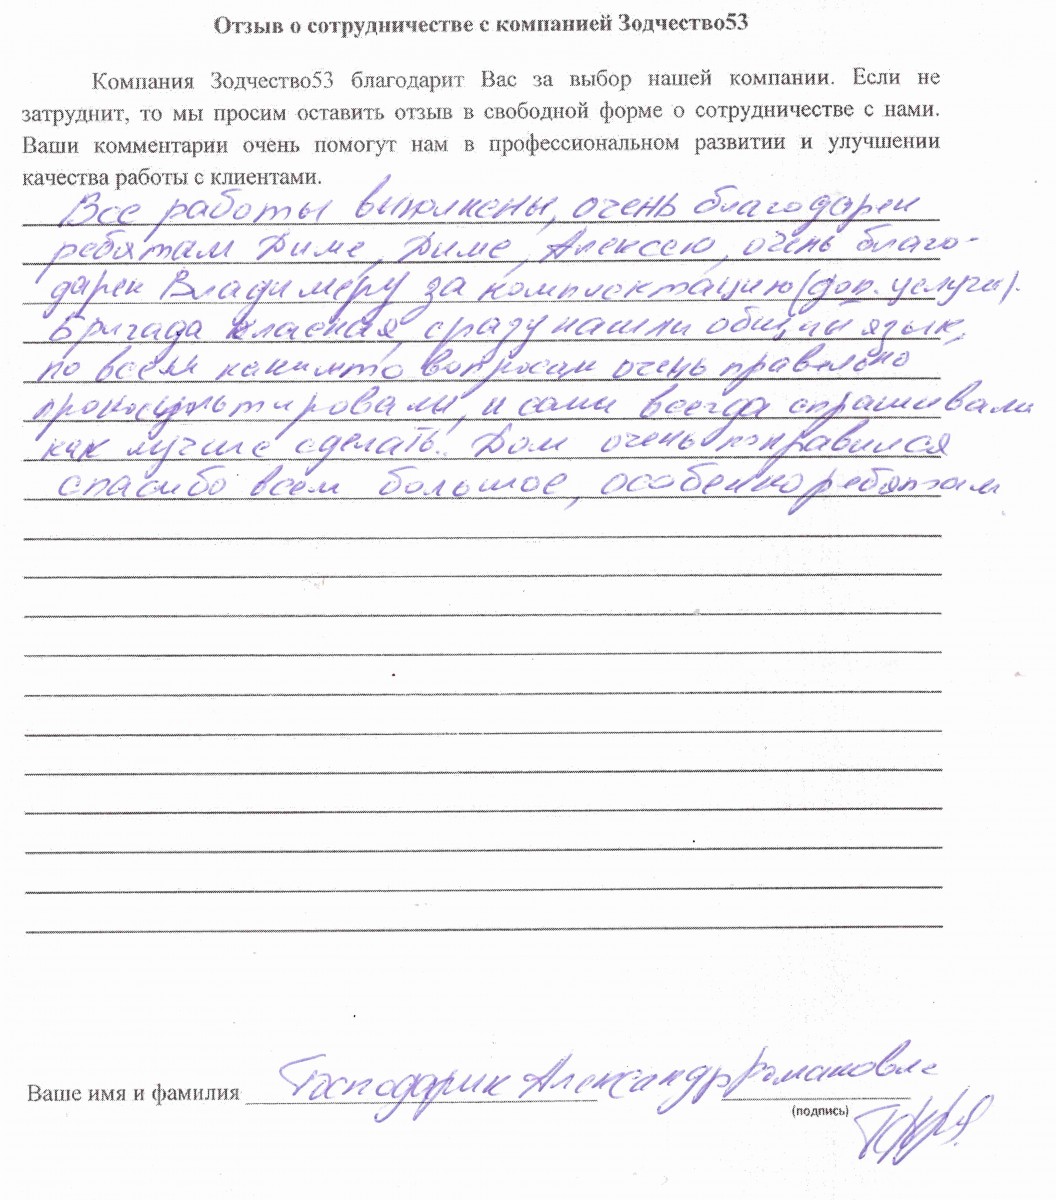 Отзыв о сотрудничестве с компанией Зодчество53
Компания Зодчество53 благодарит Вас за выбор нашей компании. Если не
затруднит, то мы просим оставить отзыв в свободной форме о сотрудничестве с нами.
Ваши комментарии очень помогут нам в профессиональном развитии и улучшении
качества работы с клиентами.
Все работы выполнены, очень благодарен
ребятам Диме, Диме, Алексею, очень благо-
дарен Владимеру за комплектацию (доп. услуги).
Бригада класная, сразу нашли общий язык,
по всем каким то вопросам очень правельно
проконсультировали, и сами всегда спрашивали
как лучше сделать. Дом очень понравился
спасибо всем большое, особенно ребятам
Ваше имя и фамилия Господарик Александр
(подпись)